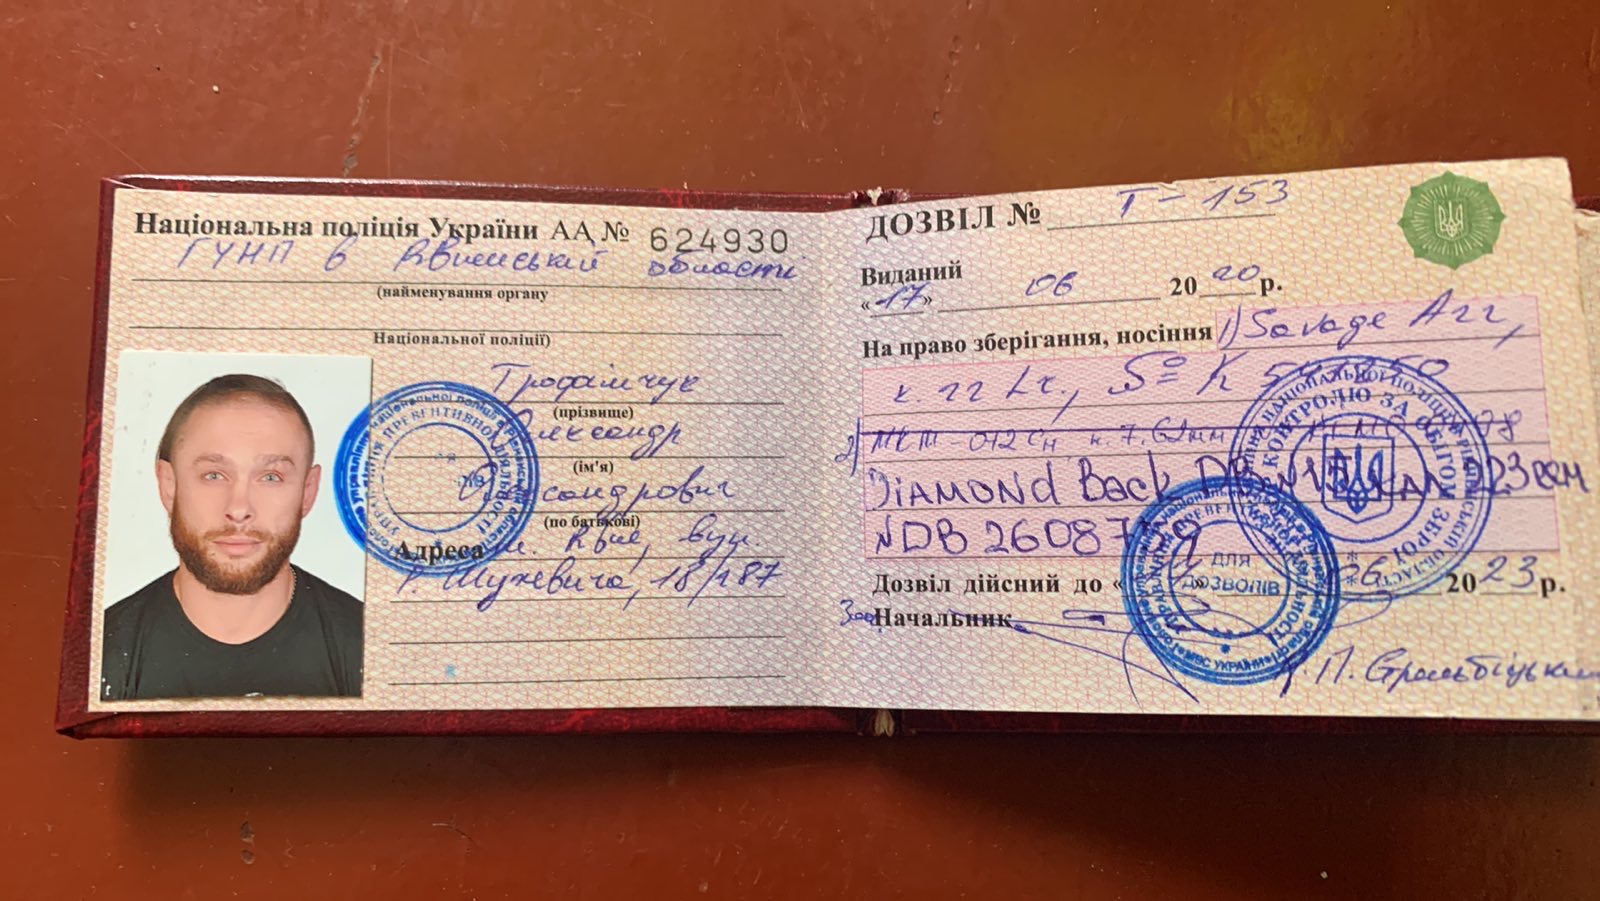 Національна поліція України АА № 624930
ГУНП в Рівненській області
(найменування органу
Національної поліції)
Трофімчук
(прізвище)
Олександр
(ім'я)
Олександрович
(по батькові)
Адреса м. Рівне, вул.
Р. Шухевича, 18/287
ДОЗВІЛ № Т-153
Виданий
«17» 06 2020 р.
На право зберігання, носіння 1) Savage Arr,
к 22 Lr, S= K 547850
2) МКМ-072Сн к. 7,62мм
DIAMOND Back DB 223 REM
NDB 260877 9
Дозвіл дійсний до « » 06 2023 р.
Зас Начальник
П. Стромбіцький
КОНТРОЛЮ ЗА ОБІГОМ ЗБРОЇ
ДЛЯ
ДОЗВОЛІВ
МВС УКРАЇНИ